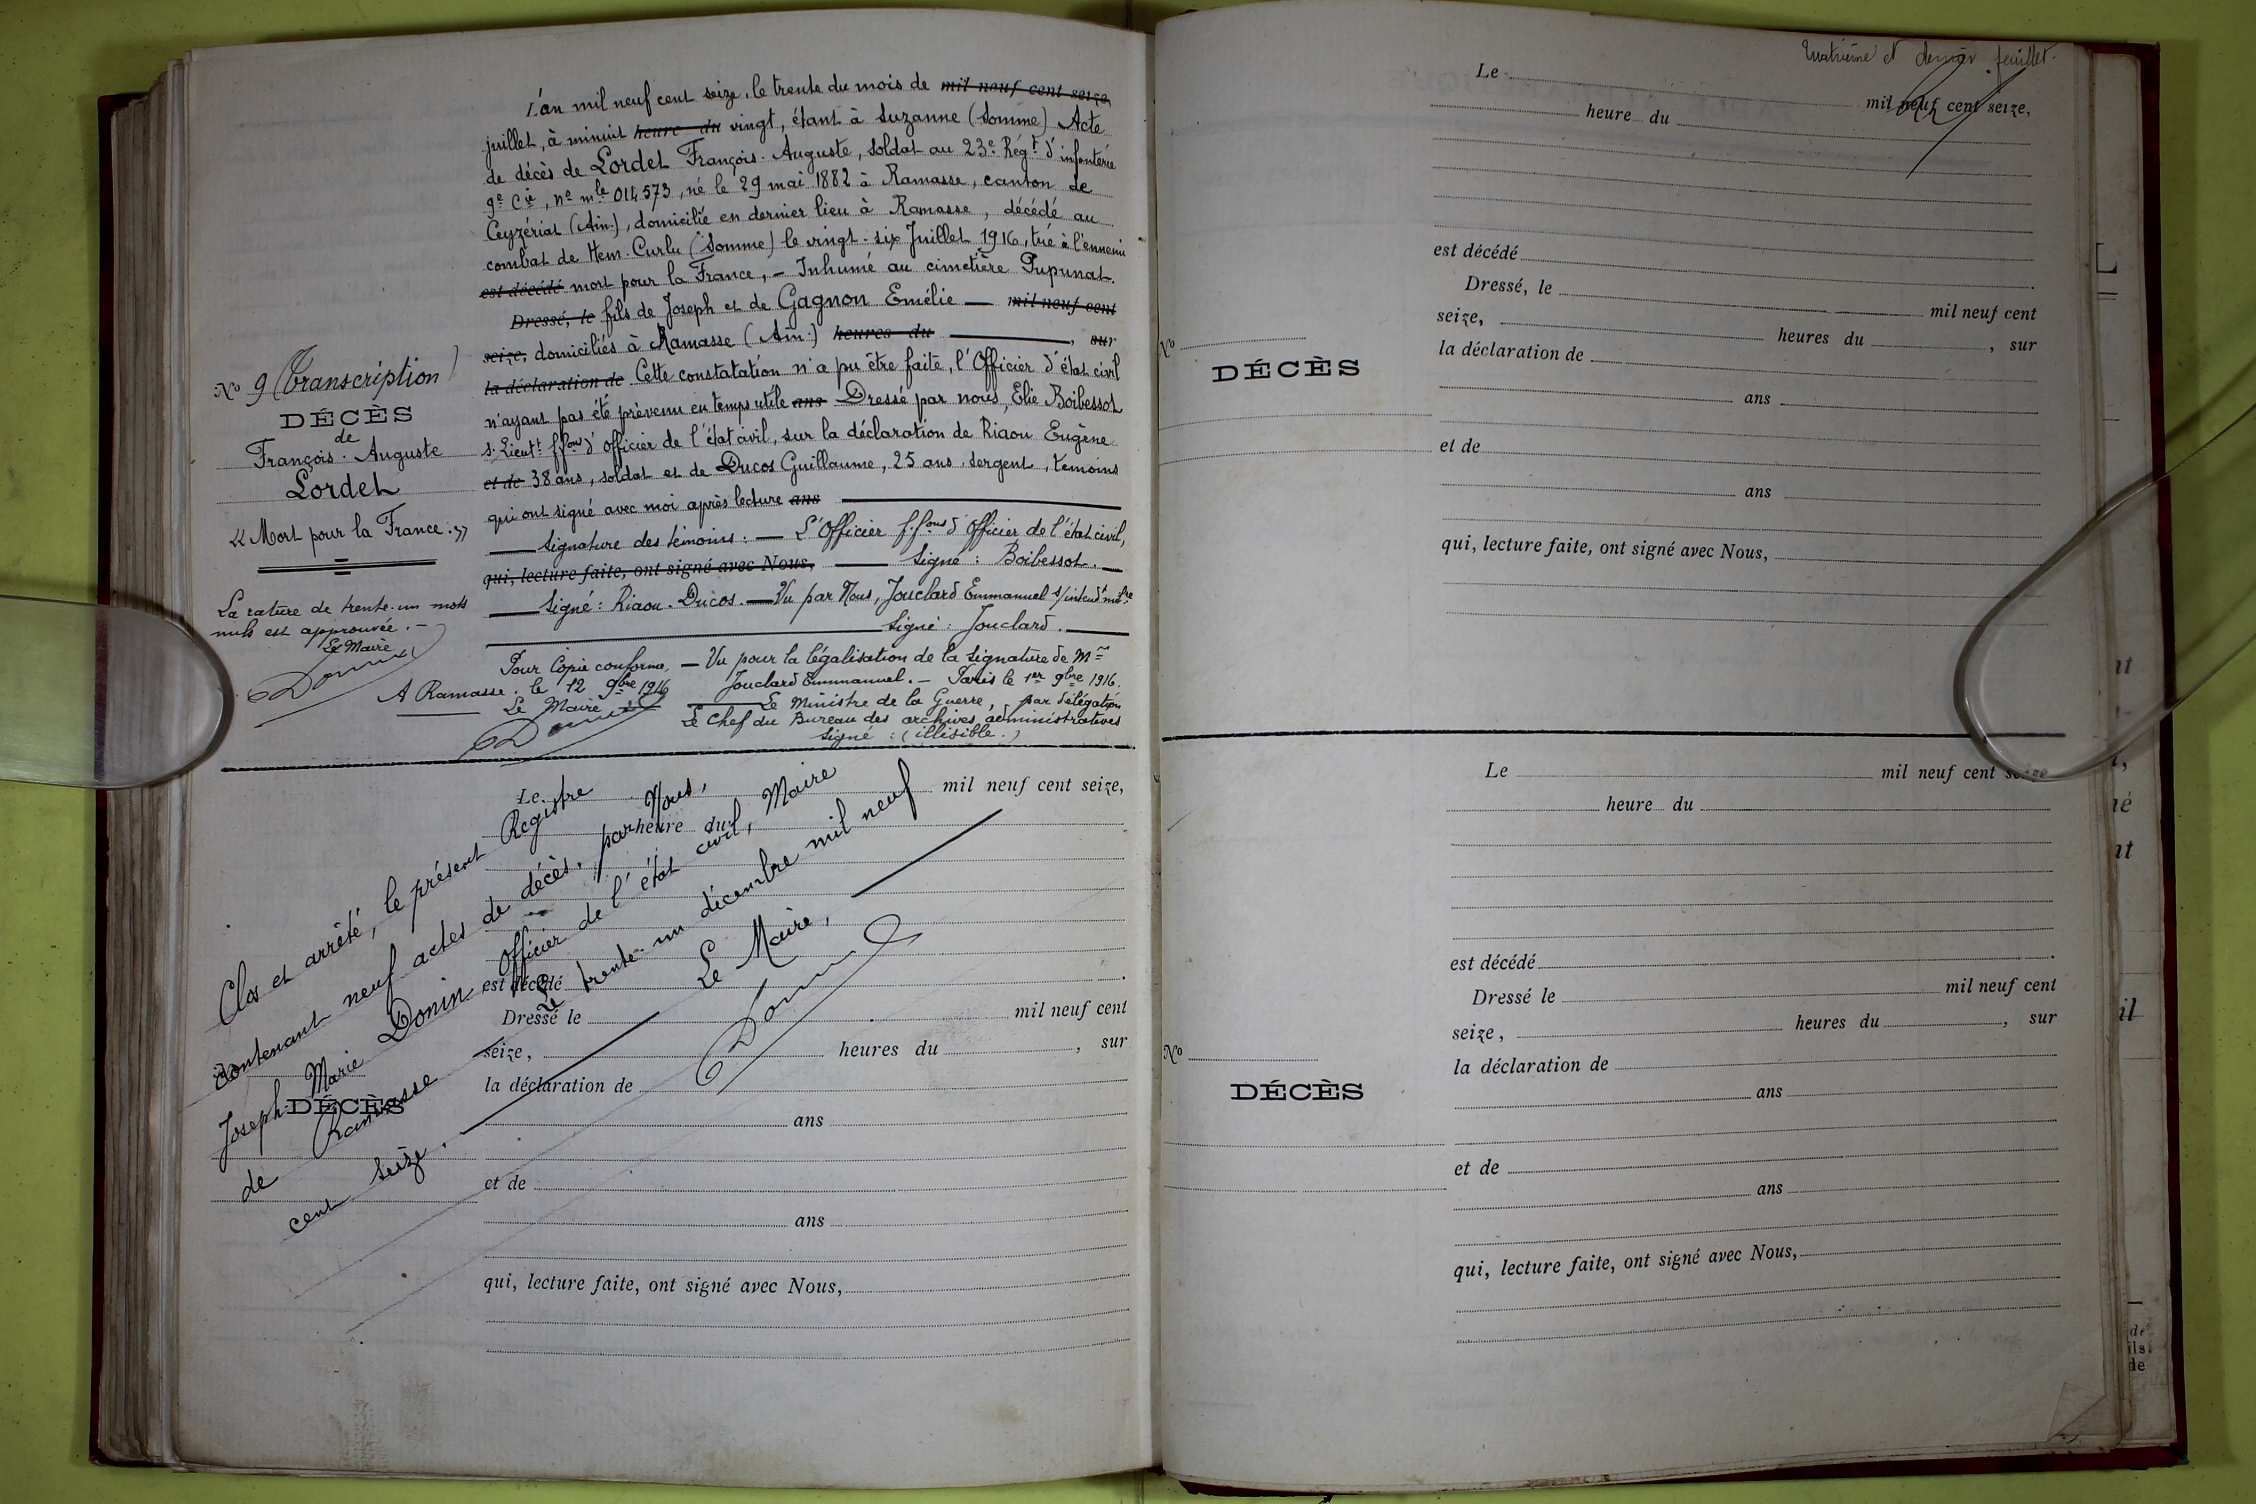 L'an mil neuf cent seize, le trente du mois de mil neuf cent seize,
juillet, à minuit heure du vingt, étant à Suzanne (Somme) Acte
de décès de Lordet François-Auguste, soldat au 23e Régt d'infanterie
9e Cie, no mle 014573, né le 29 mai 1882 à Ramasse, canton de
Ceyzériat (Ain), domicilié en dernier lieu à Ramasse, décédé au
combat de Hem-Curlu (Somme) le vingt-six Juillet 1916, tué à l'ennemi
est décédé mort pour la France, - Inhumé au cimetière Pupunat.
Dressé, le fils de Joseph et de Gagnon Emélie — mil neuf cent
seize, domiciliés à Ramasse (Ain) heures du , sur
la déclaration de Cette constatation n'a pu être faite, l'Officier d'état civil
n'ayant pas été prévenu en temps utile ans Dressé par nous, Elie Boibessot
s. Lieutt f.fons d'officier de l'état civil, sur la déclaration de Riaou Eugène
et de 38 ans, soldat et de Ducos Guillaume, 25 ans, sergent, témoins
qui ont signé avec moi après lecture ans
Signature des témoins : — L'Officier f.fons d'officier de l'état civil,
qui, lecture faite, ont signé avec Nous, — Signé : Boibessot. —
Signé : Riaou. Ducos. — Vu par Nous, Jouclard Emmanuel s/intendt mre
Signé : Jouclard.
Pour Copie conforme, — Vu pour la légalisation de la signature de Mr
A Ramasse, le 12 9bre 1916 Jouclard Emmanuel. — Paris le 1er 9bre 1916.
Le Maire Le Ministre de la Guerre, par délégation
Le Chef du Bureau des archives administratives
Signé : (illisible.)
No 9 (Transcription)
DÉCÈS
de
François-Auguste
Lordet
« Mort pour la France. »
La rature de trente-un mots
nuls est approuvée. —
Le Maire
Donin
Clos et arrêté, le présent Registre
contenant neuf actes de décès, par Nous,
Joseph-Marie Donin Officier de l'état civil, Maire
de Ramasse Le trente-un décembre mil neuf
cent seize. Le Maire,
Donin
Le mil neuf cent seize,
heure du
est décédé .
Dressé le mil neuf cent
seize, heures du , sur
la déclaration de
ans
et de
ans
qui, lecture faite, ont signé avec Nous,
DÉCÈS
Quatrième et dernier feuillet.
Le mil neuf cent seize,
heure du
est décédé .
Dressé, le mil neuf cent
seize, heures du , sur
la déclaration de
ans
et de
ans
qui, lecture faite, ont signé avec Nous,
No
DÉCÈS
Le mil neuf cent seize
heure du
est décédé .
Dressé le mil neuf cent
seize, heures du , sur
la déclaration de
ans
et de
ans
qui, lecture faite, ont signé avec Nous,
No
DÉCÈS